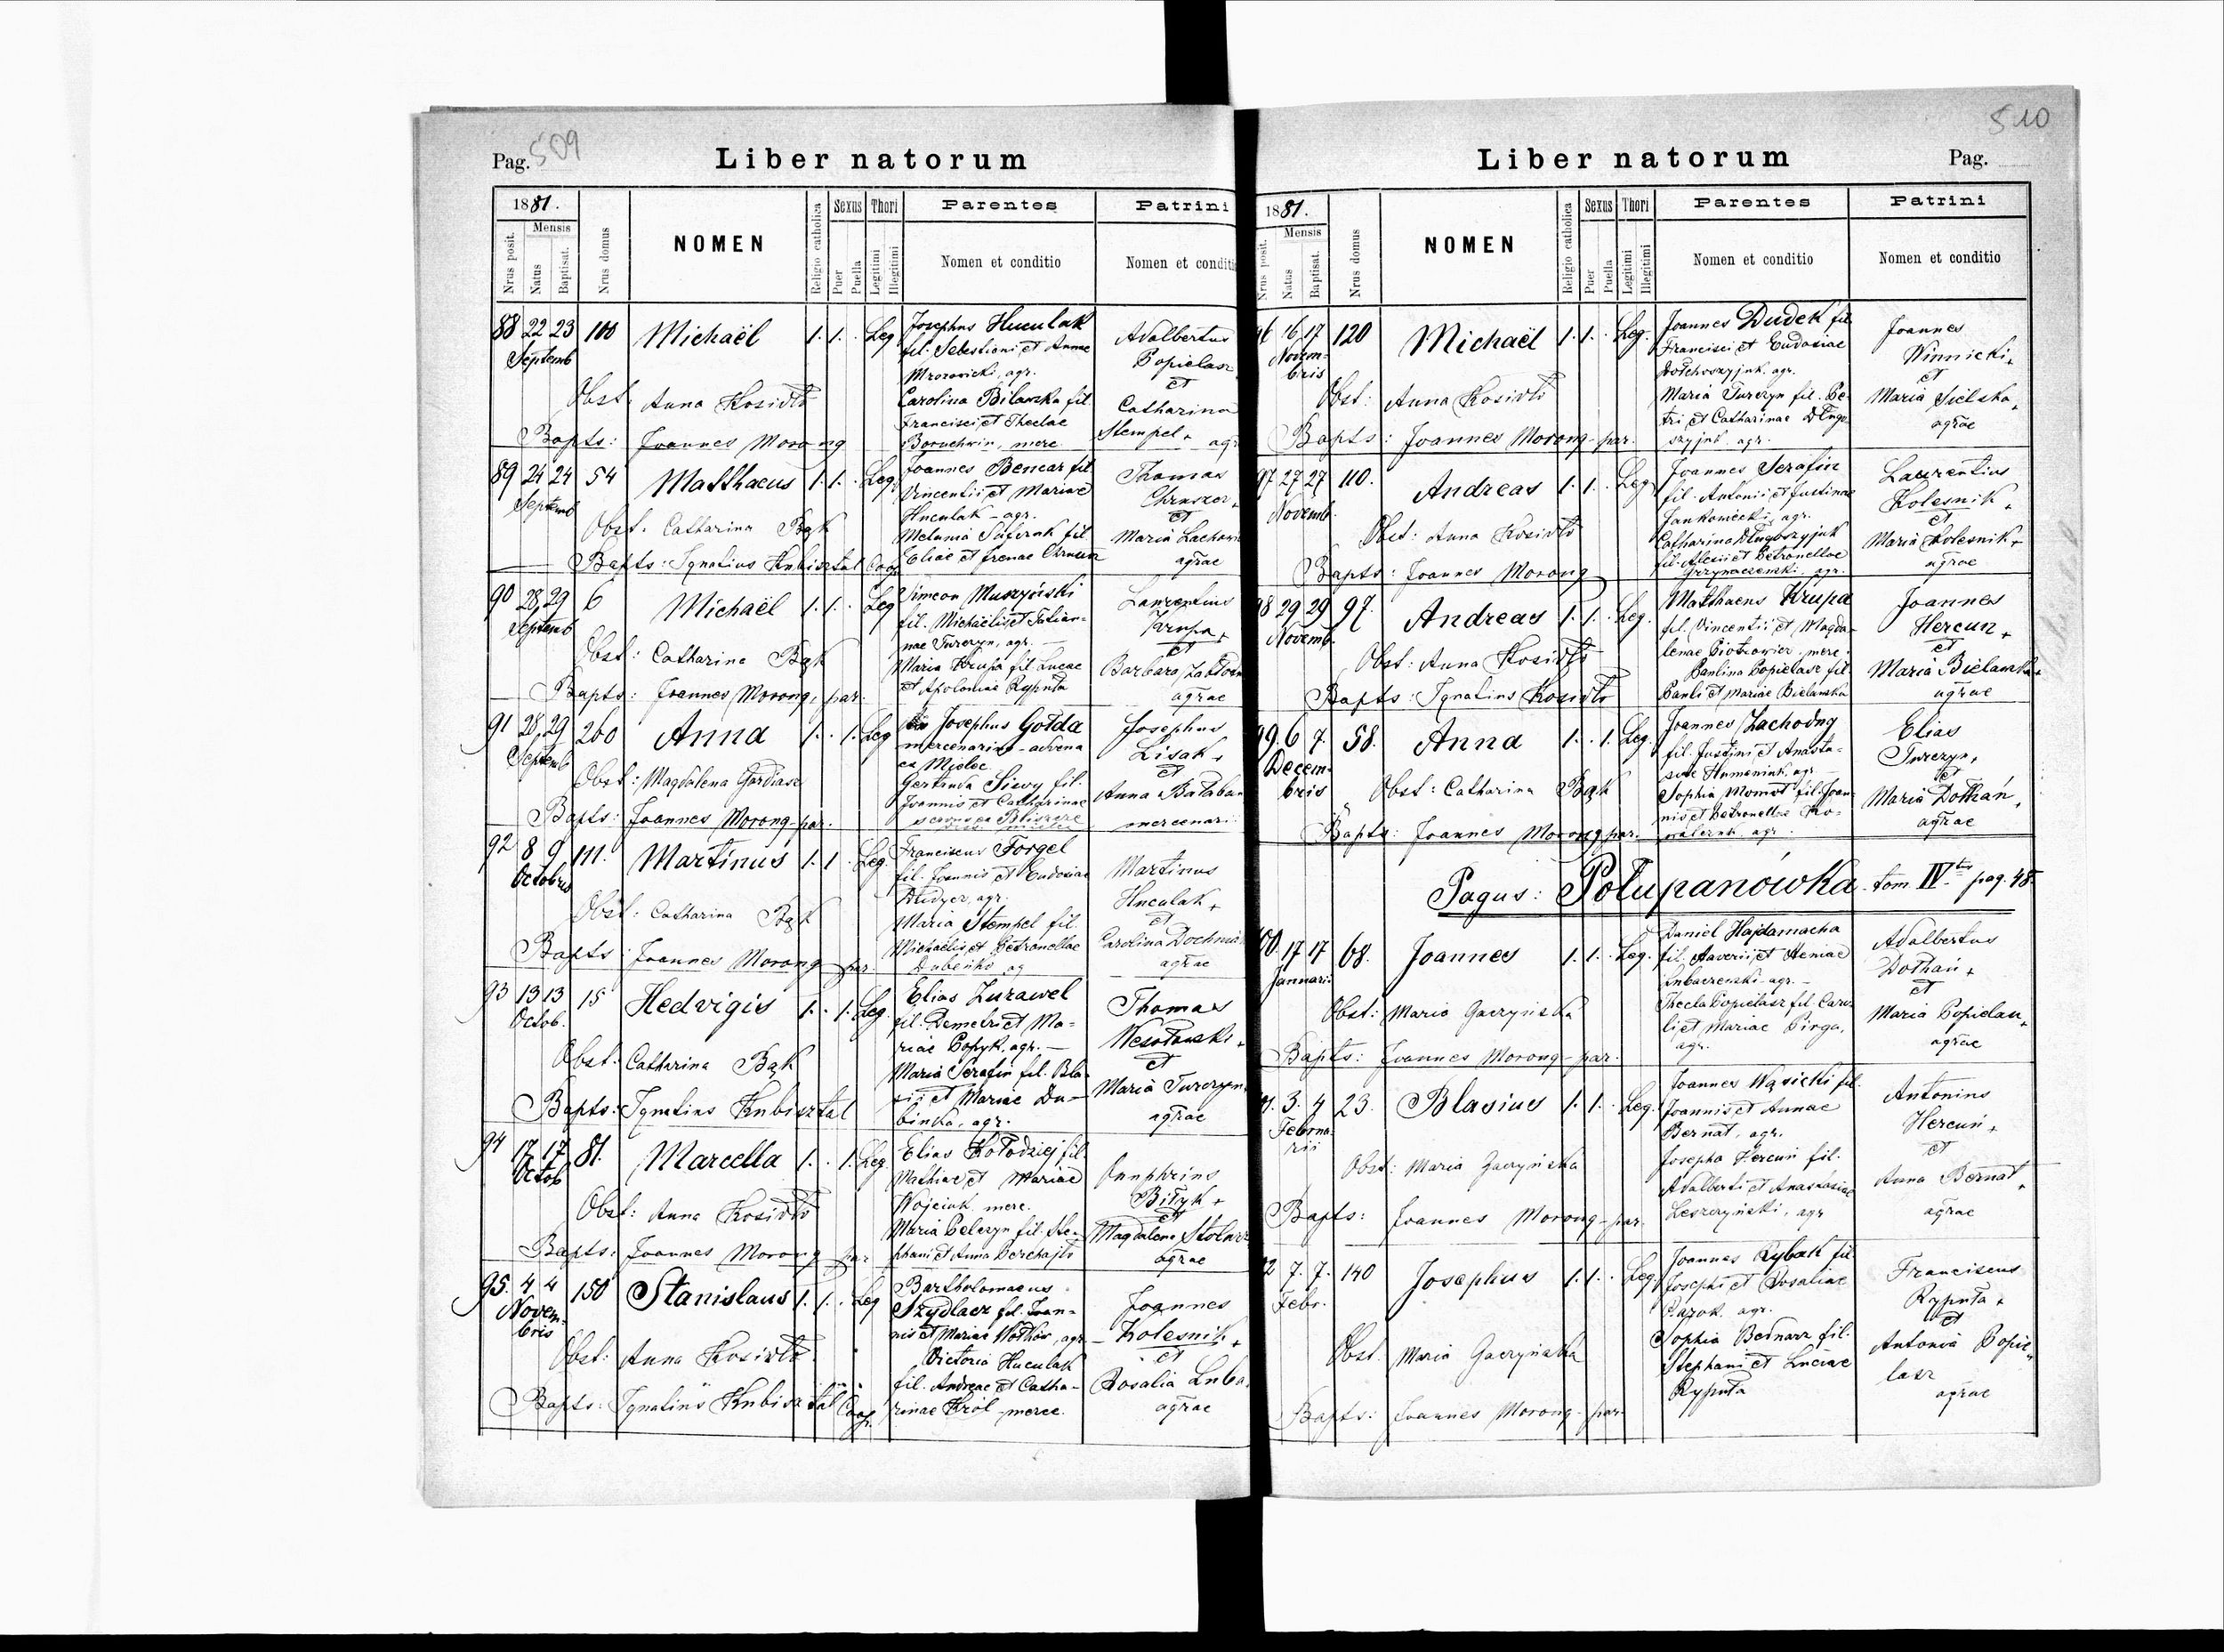 Pag. 509
Liber natorum
1881.
Mensis
Nrus posit.
Natus
Baptisat.
Nrus domus
NOMEN
Religio catholica
Sexus
Puer
Puella
Thori
Legitimi
Illegitimi
Parentes
Nomen et conditio
Patrini
Nomen et conditi
88 22 23 100 Michaël 1. 1. Leg
Septemb
Obst. Anna Kosidło
Bapts: Joannes Morong
Josephus Huculak
fil. Sebestiani et Annae
Mrozowicki, agr.
Carolina Bilawska fil.
Francisci et Theclae
merc.
Adalbertus
Popielasz
et
Catharina
Stempel + agr
89 24 24 54 Matthaeus 1. 1. Leg.
Septemb
Obst. Catharina Bąk
Bapts: Ignatius Kubisztal Coop
Joannes Bencar fil
Vincentii et Mariae
Huculak - agr.
Melania fil
Eliae et Irenae
Thomas
et
Maria
agrae
90 28 29 6 Michaël 1. 1. Leg
Septemb
Obst: Catharina Bąk
Bapts: Joannes Morong, par.
Simeon Muszyński
fil. Michaëlis et Tatian-
nae Turczyn, agr.
Maria Krupa fil. Lucae
et Apoloniae Rypuła
Laurentius
Krupa +
et
Barbara
agrae
91 28 29 260 Anna 1. . 1. Leg
Septemb
Obst: Magdalena
Bapts: Joannes Morong - par.
Josephus Gołda
mercenarius - advena
ex Mielec
Gertruda Siwy fil.
Joannis et Catharinae
Josephus
Lisak +
et
Anna Bałaban
mercenar.
92 8 9 111. Martinus 1. 1. Leg.
Octobris
Obst: Catharina Bąk
Bapts: Joannes Morong par.
Franciscus Forgel
fil. Joannis et Eudosiae
Dudyez, agr.
Maria Stempel fil.
Michaëlis et Petronellae
Dubeńko, ag
Martinus
Huculak +
et
Carolina
agrae
93 13 13 15 Hedvigis 1. . 1. Leg.
Octob.
Obst. Catharina Bąk
Bapts: Ignatius Kubisztal
Elias Zurawel
fil. Demetri et Ma-
riae Popyk, agr. —
Maria Serafin fil. Bla-
sii et Mariae Du-
binka, agr.
Thomas
Wesołowski +
et
Maria Turczyn
agrae
94 17 17 81. Marcella 1. . 1. Leg.
Octob
Obst: Anna Kosidło
Bapts: Joannes Morong par
Elias Kołodziej fil.
Mathiae et Mariae
Wojciuk merc.
Maria Pelczyn fil. Ste-
phani et Anna
Onuphrius
Bityk +
et
Magdalena
agrae
95. 4 4 150 Stanislaus 1. 1. Leg
Novem-
bris
Obst: Anna Kosidło.
Bapts: Ignatius Kubisztal Coop.
Bartholomaeus
Szydłacz fil. Joan-
nis et Mariae Wołkow, agr
Victoria Huculak
fil. Andreae et Catha-
rinae Król merce.
Joannes
Kolesnik +
et
Rosalia Luba
agrae
510
Liber natorum
Pag.
1881.
Mensis
Nrus posit.
Natus
Baptisat.
Nrus domus
NOMEN
Religio catholica
Sexus
Puer
Puella
Thori
Legitimi
Illegitimi
Parentes
Nomen et conditio
Patrini
Nomen et conditio
96 16 17 120 Michaël 1. 1. Leg.
Novem-
bris
Obst: Anna Kosidło
Bapts: Joannes Morong - par.
Joannes Dudek fil
Francisci et Eudosiae
agr.
Maria Turczyn fil. Pe-
tri et Catharinae Długo
szyjuk agr.
Joannes
Winnicki +
et
Maria Sielska +
agrae
97 27 27 110. Andreas 1. 1. Leg
Novemb.
Obst: Anna Kosidło
Bapts: Joannes Morong
Joannes Serafin
fil. Antonii et Justinae
Jankowiecki, agr.
Catharina Długoszyjuk
fil. Alexii et Petronellae
agr.
Laurentius
Kolesnik +
et
Maria Kolesnik +
agrae
98 29 29 97. Andreas 1. 1. Leg.
Novemb.
Obst: Anna Kosidło
Bapts: Ignatius Kosidło
Matthaeus Krupa
fil. Vincentii et Magda-
lenae Piotrowicz merc.
Paulina Popielasz fil.
Pauli et Mariae Bielawska
Joannes
Hercun +
et
Maria Bielawska +
agrae
99. 6 7. 58. Anna 1. . 1. Leg.
Decem-
bris
Obst: Catharina Bąk
Bapts: Joannes Morong par.
Joannes Zachodny
fil. Justini et Anasta-
siae Humeniuk, agr
Sophia Momot fil. Joan-
nis et Petronellae Ko-
agr.
Elias
Turczyn +
et
Maria Dołhań +
agrae
Pagus: Połupanówka tom IV pag. 48.
100. 17 17 68. Joannes 1. 1. Leg.
Januarii
Obst: Maria Gaczyńska
Bapts: Joannes Morong - par.
Daniel Hajdamacha
fil. et
agr. -
Thecla Popielasz fil. Caro-
li et Mariae Pirga,
agr.
Adalbertus
Dołhań +
et
Maria Popielasz +
agrae
3. 4 23. Blasius 1. 1. Leg.
Februa-
rii
Obst: Maria Gaczyńska
Bapts: Joannes Morong - par.
Joannes Wąsicki fil.
Joannis et Annae
Bernat, agr.
Josepha Hercuń fil.
Adalberti et Anastasiae
Leszczyński, agr
Antonius
Hercuń +
et
Anna Bernat +
agrae
7. 7. 140 Josephus 1. 1. Leg.
Febr.
Obst. Maria Gaczyńska
Bapts: Joannes Morong - par
Joannes Rybak fil
Josephi et Rosaliae
agr.
Sophia Bednarz fil.
Stephani et Luciae
Rypuła
Franciscus
Rypuła +
et
Antonia Popie-
lasz
agrae